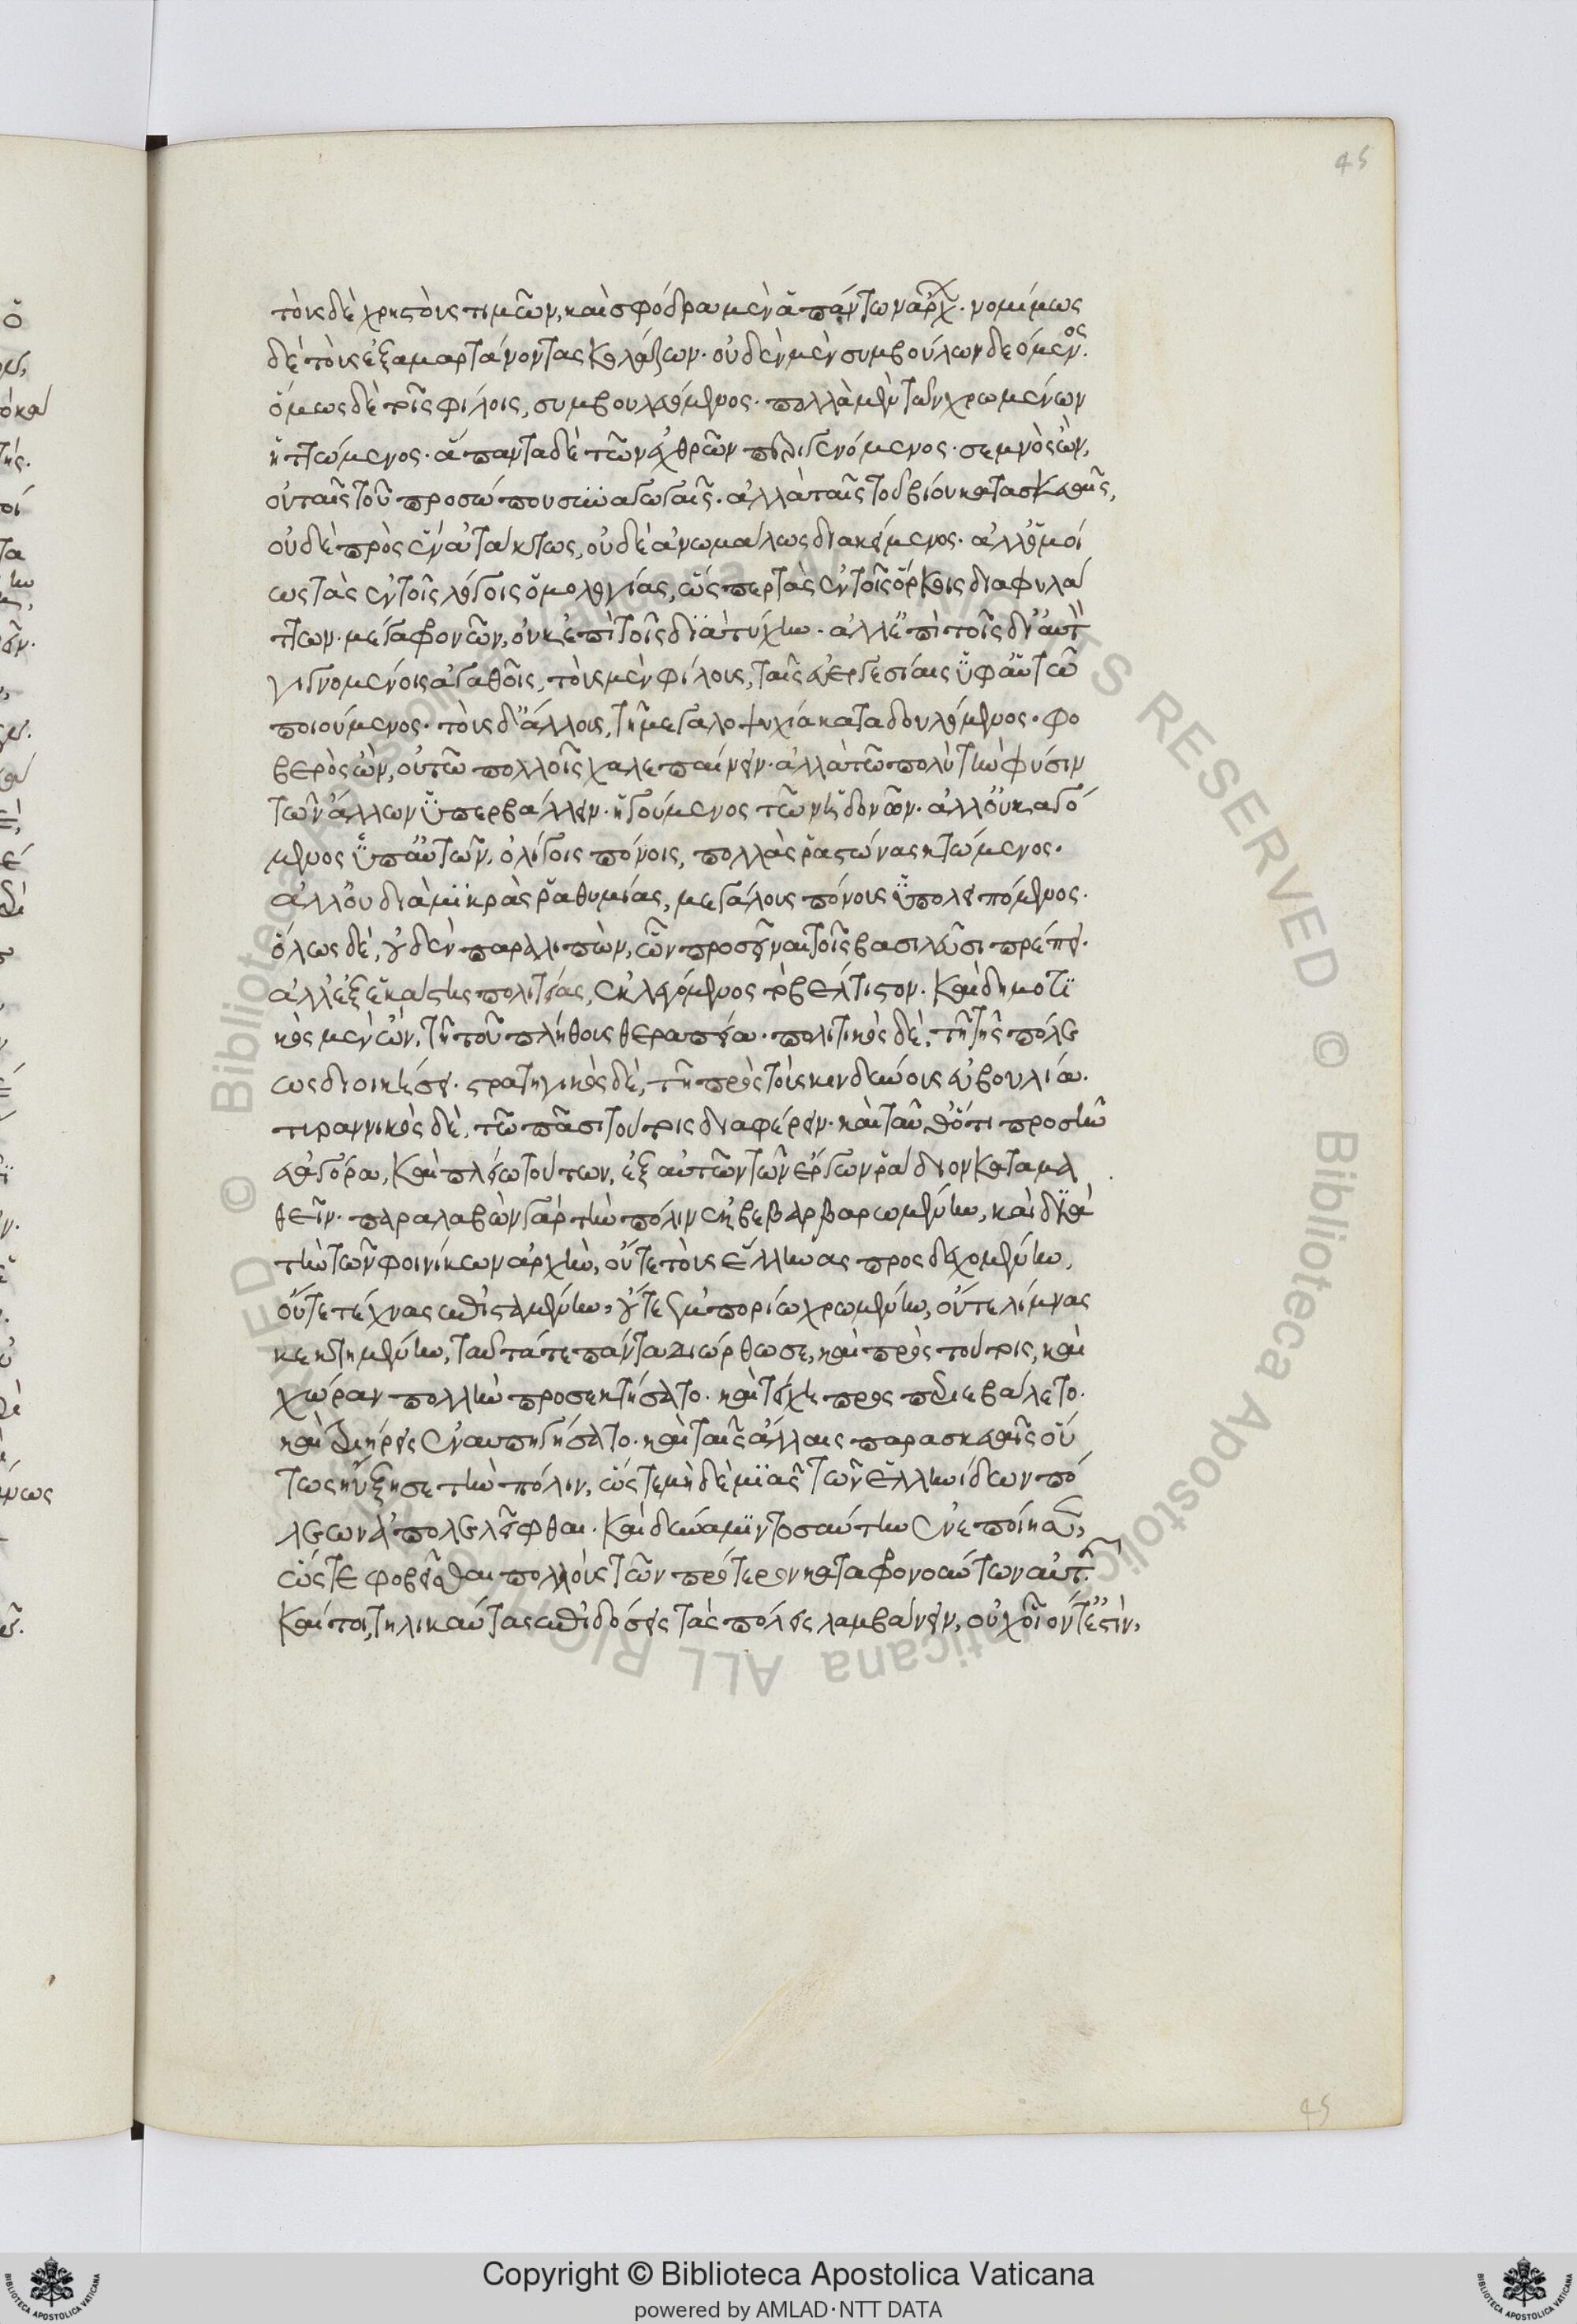 45
τοὺς δὲ χρηστοὺς τιμῶν, καὶ σφόδρα μὲν ἁπάντων ἄρχ· νομίμως
δὲ τοὺς ἐξαμαρτάνοντας κολάζων· οὐδὲν μὲν συμβούλων δεόμενος·
ὅμως δὲ τοῖς φίλοις, συμβουλευόμενος· πολλὰ μὲν τῶν χρωμένων
ἡττώμενος· ἅπαντα δὲ τῶν ἐχθρῶν περιγενόμενος· σεμνὸς ὢν,
οὐ ταῖς τοῦ προσώπου συναγωγαῖς· ἀλλὰ ταῖς τοῦ βίου κατασκευαῖς,
οὐδὲ πρὸς ἓν ἀτάκτως, οὐδὲ ἀνωμάλως διακείμενος· ἀλλ' ὁμοί
ως τὰς ἐν τοῖς λόγοις ὁμολογίας, ὥσπερ τὰς ἐν τοῖς ὅρκοις διαφυλά
ττων· μεγαφρονῶν, οὐκ ἐπὶ τοῖς διὰ τύχην· ἀλλ' ἐπὶ τοῖς δι' αὑτ
γιγνομένοις ἀγαθοῖς, τοὺς μὲν φίλους, ταῖς εὐεργεσίαις ὑφ' αὑτῶ
ποιούμενος· τοὺς δ' ἄλλους, τῇ μεγαλοψυχία καταδουλούμενος· φο
βερὸς ὢν, οὐ τῶ πολλοῖς χαλεπαίνειν· ἀλλὰ τῶ πολὺ τὴν φύσιν
τῶν ἄλλων ὑπερβάλλειν· ἡγούμενος τῶν ἡδονῶν· ἀλλ' οὐκ ἀγό
μενος ὑπ' αὐτῶν, ὀλίγοις πόνοις, πολλὰς ῥαστώνας κτώμενος·
ἀλλ' οὐ διὰ μικρὰς ῥαθυμίας, μεγάλους πόνους ὑπολειπόμενος·
ὅλως δὲ, οὐδὲν παραλιπὼν, ὧν προσεῖναι τοῖς βασιλεῦσι πρέπει·
ἀλλ' ἐξ ἑκάστης πολιτείας, ἐκλεγόμενος τὸ βέλτιστον· καὶ δημοτι
κὸς μὲν ὢν, τῇ τοῦ πλήθους θεραπεία· πολιτικὸς δὲ, τῇ τῆς πόλε
ως διοικήσει· στρατηγικὸς δὲ, τῇ πρὸς τοὺς κινδύνους εὐβουλία·
τυραννικὸς δὲ, τῶ πᾶσι τούτοις διαφέρειν· καὶ ταῦθ' ὅτι προσῆν
εὐαγόρα, καὶ πλείω τούτων, ἐξ αὐτῶν τῶν ἔργων ῥάδιον καταμα
θεῖν· παραλαβὼν γὰρ τὴν πόλιν ἐκβεβαρβαρωμένην, καὶ διὰ
τὴν τῶν φοινίκων ἀρχὴν, οὔτε τοὺς ἕλληνας προσδεχομένην,
οὔτε τέχνας ἐπισταμένην, οὔτε ἐμπορίω χρωμένην, οὔτε λιμένας
κεκτημένην, ταῦτά τε πάντα διώρθωσε, καὶ πρὸς τούτοις, καὶ
χώραν πολλὴν προσεκτήσατο· καὶ τείχη προσπεριεβάλετο·
καὶ τριήρεις ἐναυπηγήσατο· καὶ ταῖς ἄλλαις παρασκευαῖς οὕ
τως ηὔξησε τὴν πόλιν, ὥστε μηδὲ μιᾶς τῶν ἑλληνίδων πό
λεων ἀπολελεῖφθαι· καὶ δύναμιν τοσαύτην ἐνεποίησεν,
ὥστε φοβεῖσθαι πολλοὺς τῶν πρότερον καταφρονούντων αὐτῆς·
καί τοι, τηλικαύτας ἐπιδόσεις τὰς πόλεις λαμβάνειν, οὐχ οἷόν τ' ἐστὶν,
45
Copyright © Biblioteca Apostolica Vaticana
powered by AMLAD·NTT DATA